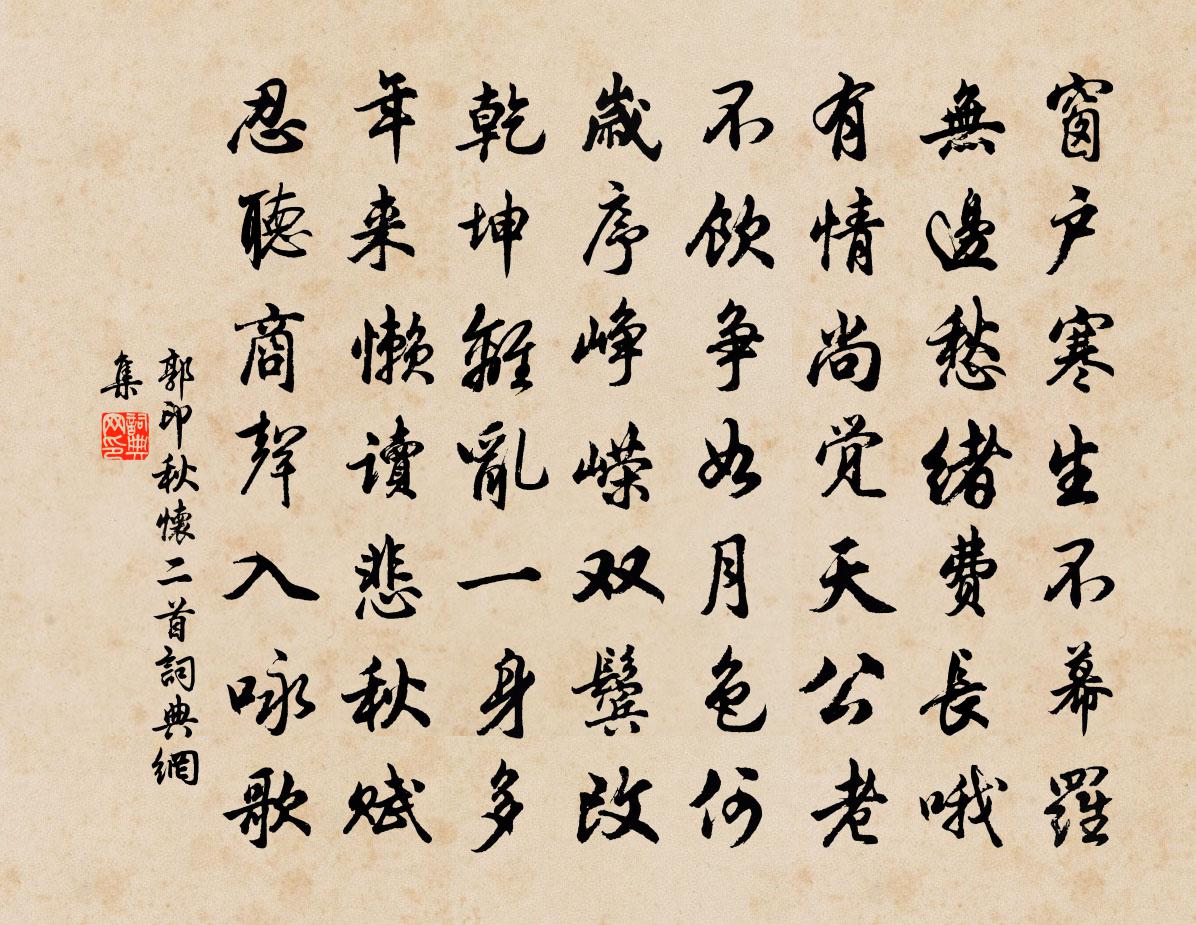 窗户寒生不幕羅
無邊愁緒費長哦
有情尚觉天公老
不飲争如月色何
歲序峥嵘双鬓改
乾坤離亂一身多
年来懒讀悲秋赋
忍聽商聲入咏歌
郭印秋懷二首詞典網
集
詞典网印